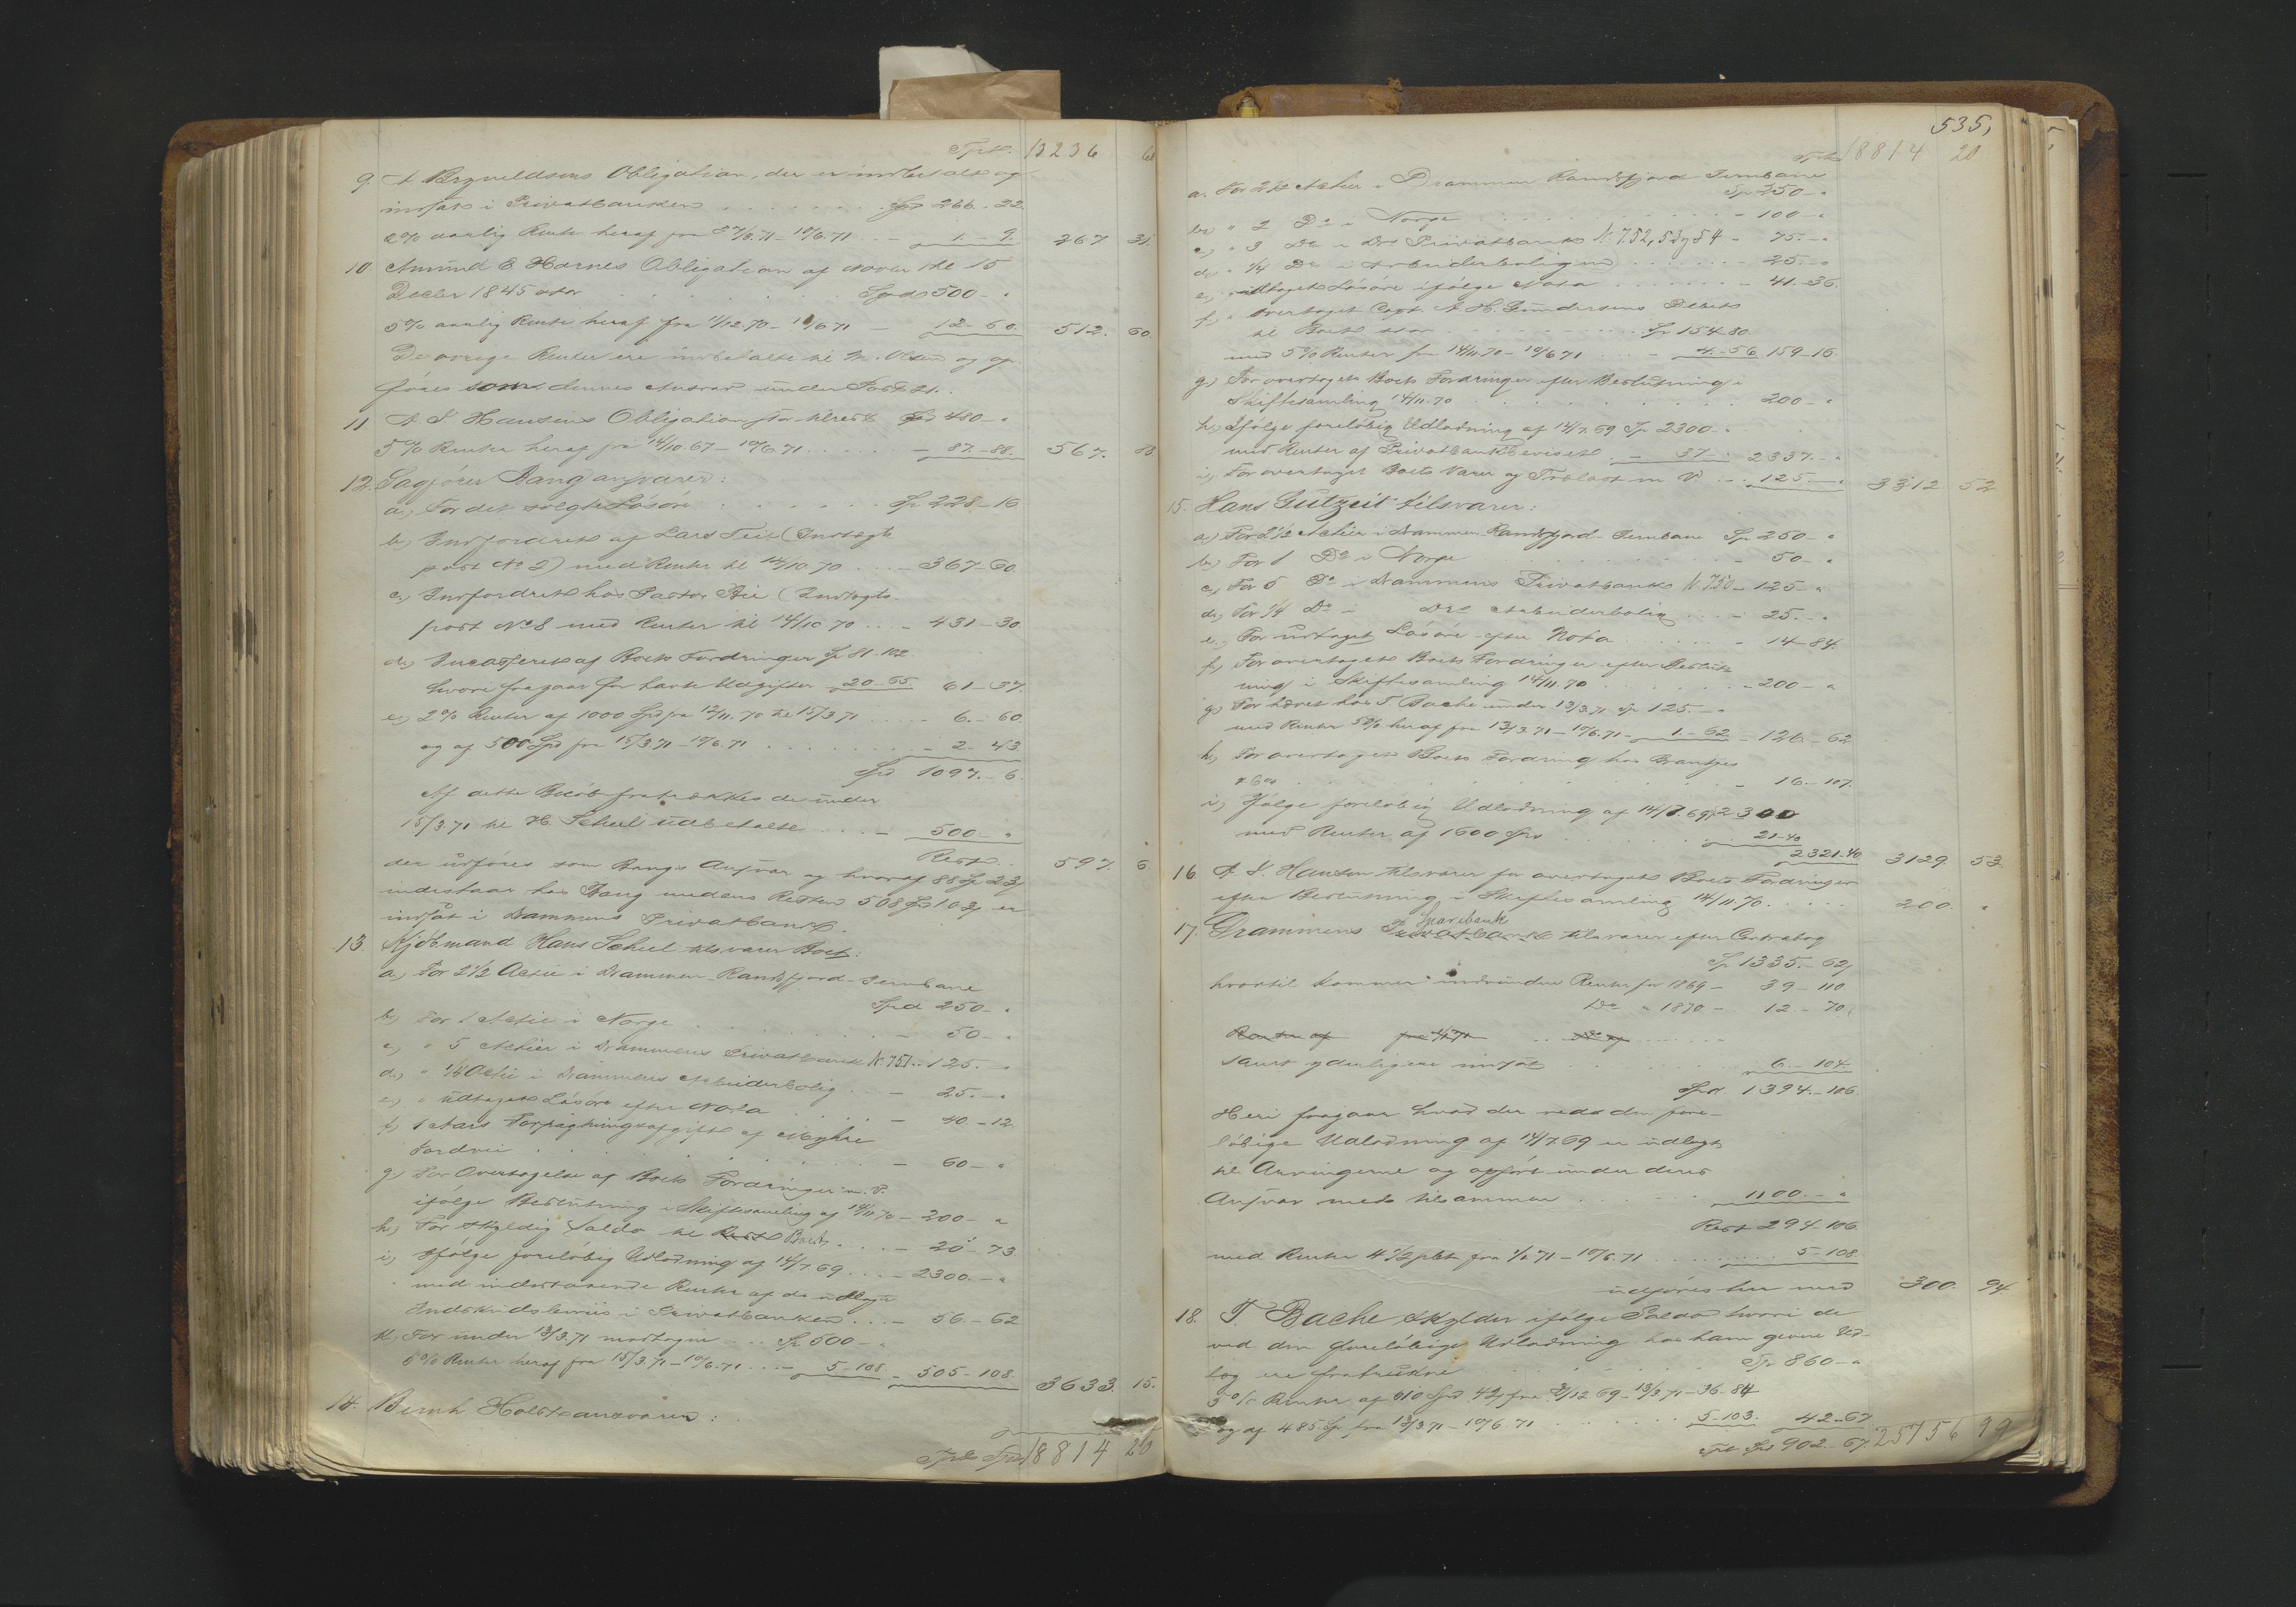 Trsp. 13236 6
9. A Brynildsens Obligation, der er indbetalt og
indsat i Privatbanken Spd 266 - 22
2% aarlig Rente heraf fra 27/3.71 - 10/6.71 - 1. - 9. 267 31.
10 Amund E Hornes Obligation af
Decbr 1845 stor Spd 500 - "
5% aarlig Rente heraf fra 11/12.70 - 10/6 71 - 12 - 60. 512. 60.
De øvrige Renter ere indbetalte til M. Olsen og op-
føres som dennes Ansvar under Post 21.
11 A S Hansens Obligation stor tilrest Spd 480 - "
5% Renter heraf fra 14/10.67 - 10/6.71 - 87. - 88. 567. 88
12. Sagfører Bang ansvarer:
a.) For det solgte Løsøre Sp 228 - 16
b.) Indfordret af Lars Teie (Indtægts
post No 2) med Renter til 14/10.70 - 367 - 60.
c.) Indfordret hos Pastor Bie (Indtægts
post No 8 med Renter til 14/10 70 - 431 - 30
d.) Incasseret af Boets Fordringer Sp 81 - 102
hvori fragaar for havte Udgifter 20 - 65 61 - 37.
e.) 2% Renter af 1000 Spd fra 12/11.70 til 15/3 71 - 6. - 60.
og af 500 Spd fra 15/3 71 - 10/6.71 - 2 - 43
Spd 1097. - 6.
Af dette Beløb fratrækkes de under
15/3.71 til H. Scheel udbetalte - 500 - "
Rest 597. 6.
der udføres som Bangs Ansvar og hvoraf 88 Sp 23 ß
indestaar hos Bang medens Resten 508 Spd 102 ß er
indsat i Drammens Privatbank.
13 Kjøbmand Hans Scheel tilsvarer Boet:
a.) For 2 1/2 Actie i Drammen-Randsfjord-Jernbane
Spd 250 - "
b.) For 1 Actie i Norge - 50 - "
c.) " 5 Actier i Drammens Privatbank N. 751 .. 125. - "
d.) " 1/4 Actie i Drammens Arbeiderbolig - 25. - "
e.) " udtaget Løsøre efter Nota - 40. - 12
f.) 1 Aars Forpagtningsafgift af Myhre
- 60 - "
g.) For Overtagelse af Boets Fordringer m. V.
ifølge Beslutning i Skiftesamling af 14/11.70 - 200 - "
h.) For skyldig Saldo til Rest Boet - 20 - 73
i.) Ifølge foreløbig Udlodning af 14/7.69 - 2300. - "
med indestaaende Renter af de udlagte
Indskudsbeviis i Privatbanken - 56. - 62
k. For under 13/3.71 modtagne Sp 500 - "
5% Renter heraf fra 15/3.71 - 10/6.71 - 5 - 108. - 505 - 108. 3633. 15.
14. Bernh Holst ansvarer:
Trsp Spd 18814 20
535,
Trsp 18814 20
a. For 2 1/2 Actier i Drammen Randsfjord Jernbane
Sp 250 - "
b.) " 2 Do i Norge - 100 - "
c.) " 3 Do i Drs Privatbank N. 752, 53 og 54 - 75. - "
d.) " 1/4 Do i Arbeiderboligen - 25. - "
e.) " udtaget Løsøre ifølge Nota - 41. - 36.
f.) " overtaget Capt. A H. Gundersens Debet
til Boet stor Sp 154 80
med 5% Renter fra 14/11.70 - 10/6 71 - 4. - 56. 159 - 16.
g.) For overtaget Boets Fordringer efter Beslutning i
Skiftesamling 14/11.70 200 - "
h.) Ifølge foreløbig Udlodning af 14/7.69 Sp 2300 - "
med Renter af Privatbankbeviset - 37 - " 2337. - "
i.) For overtaget Boets Varer og m V - 125. - " 3312 52
15. Hans Gutzeit tilsvarer:
a.) For 2 1/2 Actier i Drammen-Randsfjord-Jernbane Sp. 250 - "
b.) For 1 Do i Norge - 50 - "
c.) For 5 Do i Drammens Privatbank N 750 - 125 - "
d.) For 1/4 Do i Drs Arbeiderbolig - 25. - "
e.) For udtaget Løsøre efter Nota - 14 - 84.
f.) For overtaget Boets Fordringer efter Beslut-
ning i Skiftesamling 14/11.70 - 200 - "
g.) For hævet hos T. Bache under 13/3.71 Sp 125. - "
med Renter 5% heraf fra 13/3.71 - 10/6.71 - 1. - 62 - 126. - 62
h.) For overtaget Boets Fordring hos
& Co - 16. - 107.
i.) Ifølge foreløbig Udlodning af 14/7.69 Sp 2300
med Renter af 1600 Spd 21 - 40
2321 - 40 3129. 53
16. A. S. Hansen tilsvarer for overtaget Boets Fordringer
efter Beslutning i Skiftesamling 14/11.70 200. "
Sparebank
17. Drammens Privatbank tilsvarer efter Contrabog
Sp 1335. - 62
hvortil kommer indvundne Renter for 1869 - 39 - 110
Do " 1870 - 12. - 70
Renter af fra 1/1 71 Do af
samt yderligere indsat 6. - 104.
Spd 1394. - 106
Heri fragaar hvad der ved den fore-
løbige Udlodning af 14/7.69 er udlagt
til Arvingerne og opført under deres
Ansvar med tilsammen 1100. - "
Rest 294 - 106.
med Renter 4 1/2 pCt fra 1/1 71 - 10/6.71 5 - 108.
udføres her med 300. 94
18. T. Bache skylder ifølge Saldo hvori de
ved den foreløbige Udlodning hos ham givne Ud-
læg ere fratrukne Sp 860 - "
5% Renter af 610 Spd 42 ß fra 31/12 69 - 13/3 71 - 36 - 84
og af 485 Sp fra 13/3 71 - 10/6.71 5 - 103. 42 - 67
Trsp Spd 902 - 67. 25756 99